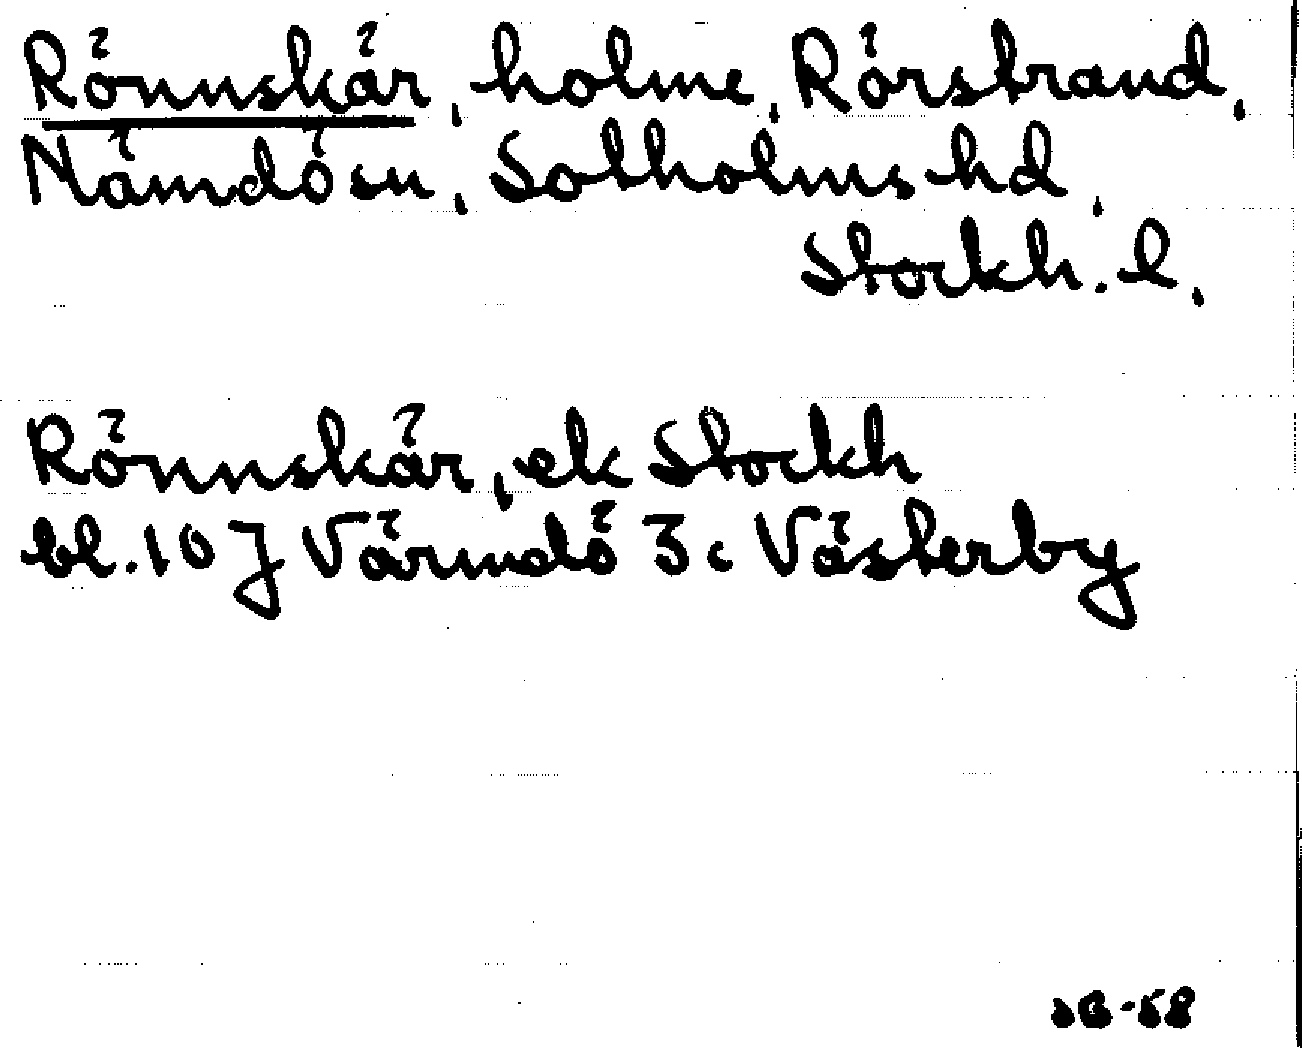 Rönnskär, holme, Rörstrand,
Nämdö sn, Sotholms hd,
Stockh. l.
Rönnskär, ek Stockh
bl. 10 J Värmdö 3c Västerby
SB-58